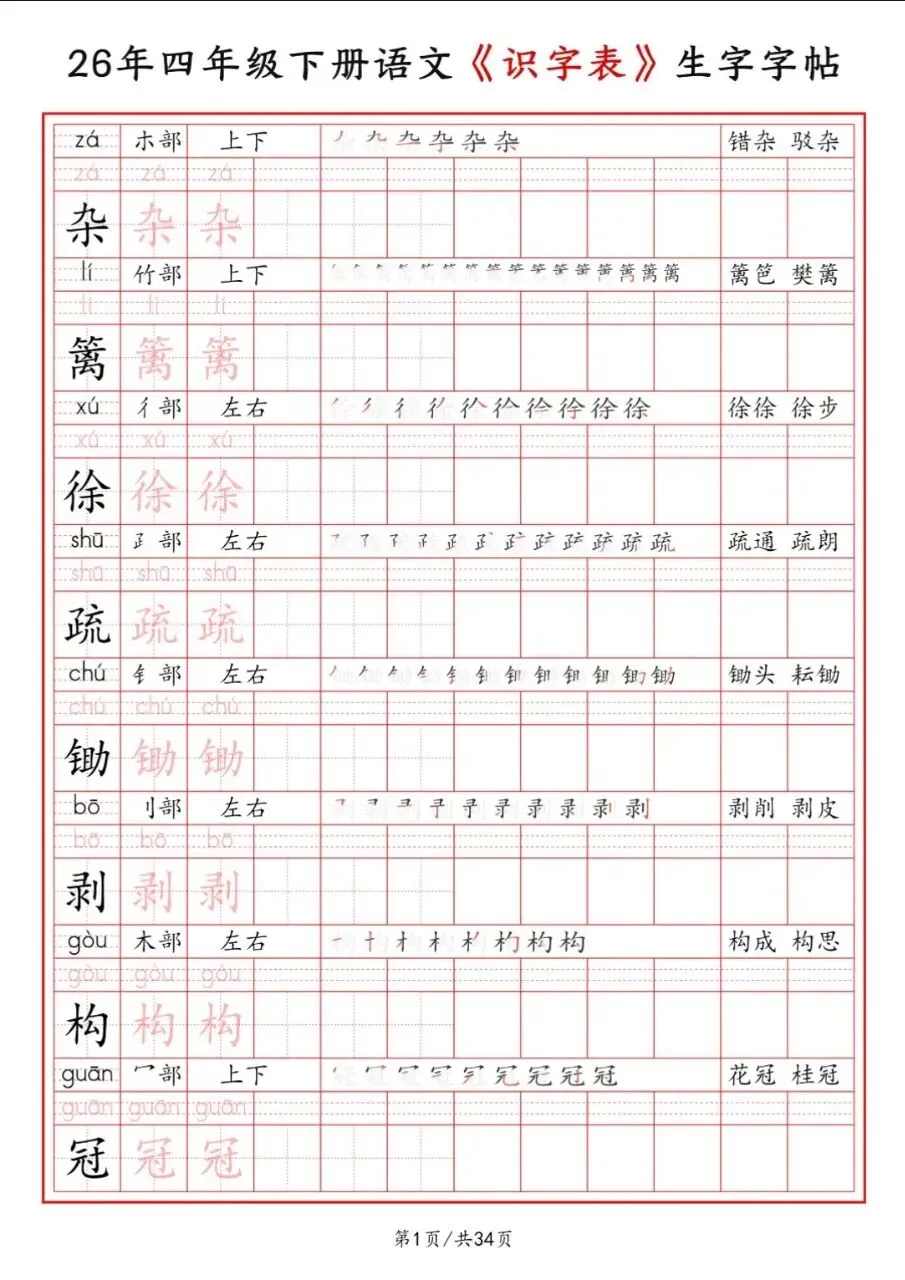 26年四年级下册语文《识字表》生字字帖
zá 木部 上下 杂 错杂 驳杂
zá zá zá
杂 杂 杂
lí 竹部 上下 篱 篱笆 樊篱
lí lí lí
篱 篱 篱
xú 彳部 左右 徐 徐徐 徐步
xú xú xú
徐 徐 徐
shū 𤴔部 左右 疏 疏通 疏朗
shū shū shū
疏 疏 疏
chú 钅部 左右 锄 锄头 耘锄
chú chú chú
锄 锄 锄
bō 刂部 左右 剥 剥削 剥皮
bō bō bō
剥 剥 剥
gòu 木部 左右 构 构成 构思
gòu gòu gòu
构 构 构
guān 冖部 上下 冠 花冠 桂冠
guān guān guān
冠 冠 冠
第1页/共34页